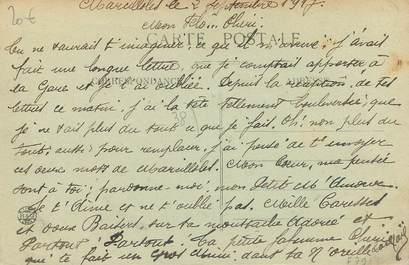 20€
Marcillolet le 2 Septembre 1917
Mon Flo... Chéri.
CARTE POSTALE
Tu ne saurait t'imaginer, ce qui m'arrive; j'avais
fait une longue lettre, que je comptait apporter, à
CORRESPONDANCE ADRESSE
la Gare et je l'ai oubliée. Depuis la réception, de tes
lettres ce matin, j'ai la tête tellement boulversée; que
je ne sait plus du tout ce que je fait. Oh! non plus du
38
tout, aussi; pour remplacer, j'ai pensé de t'envoyer
ces deux mots de Marcillolet. Mon Cœur, ma pensée
sont à toi; pardonne-moi, mon Petit M'Amour.
Je t'Aime et ne t'oublie pas. Mille Caresses
et doux Baisers sur ta moustache Adorée et
Partout! Partout. Ta petite femme Chérie
qui te fait un gros dans la